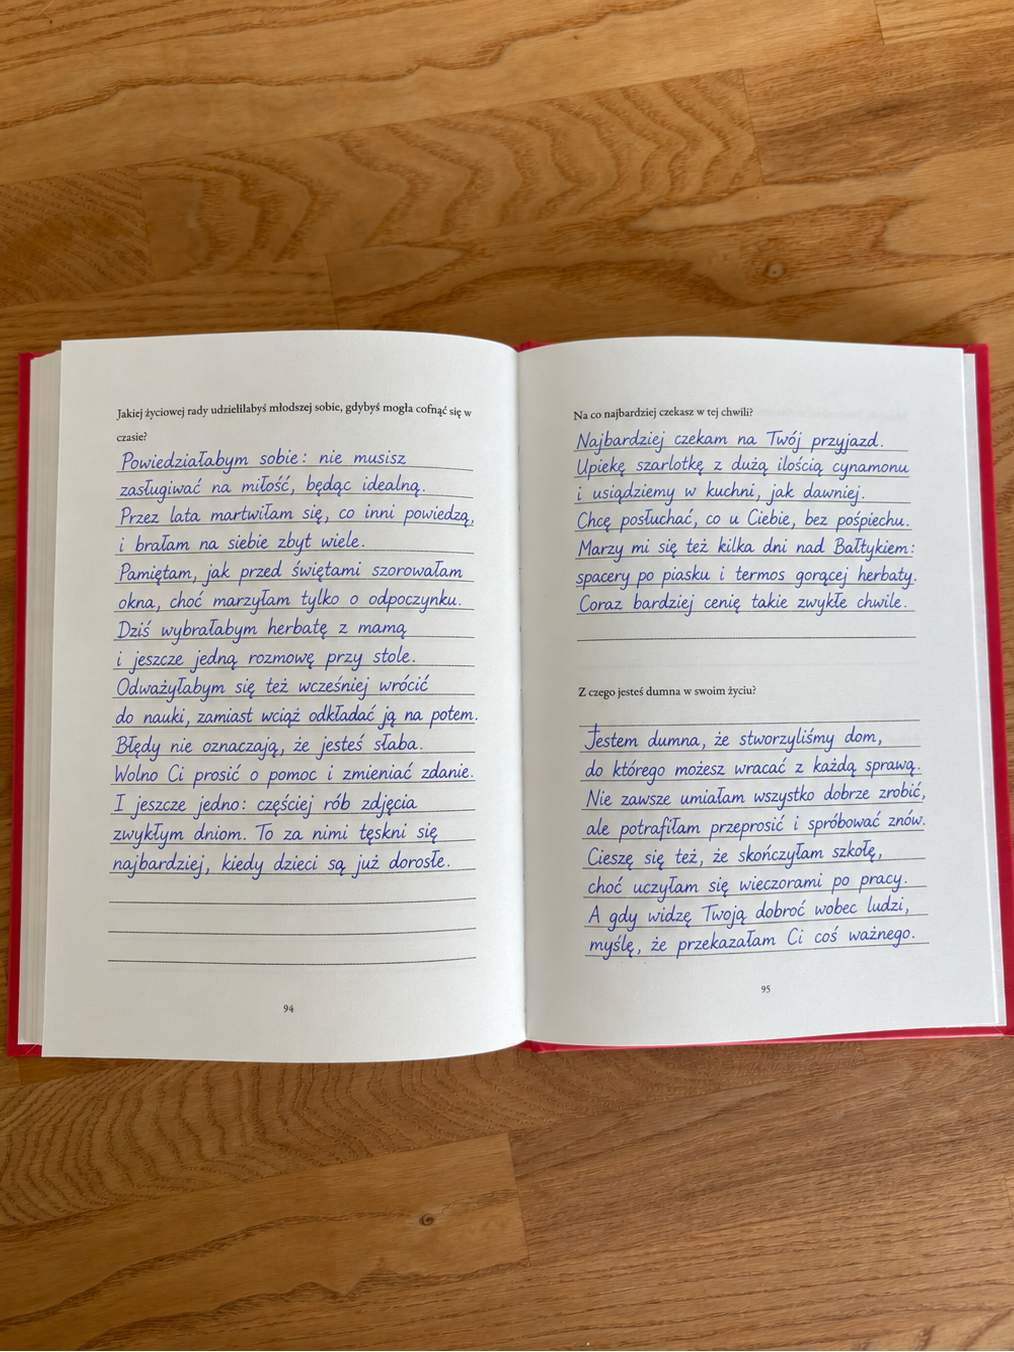 Jakiej życiowej rady udzieliłabyś młodszej sobie, gdybyś mogła cofnąć się w
czasie?
Powiedziałabym sobie: nie musisz
zasługiwać na miłość, będąc idealną.
Przez lata martwiłam się, co inni powiedzą,
i brałam na siebie zbyt wiele.
Pamiętam, jak przed świętami szorowałam
okna, choć marzyłam tylko o odpoczynku.
Dziś wybrałabym herbatę z mamą
i jeszcze jedną rozmowę przy stole.
Odważyłabym się też wcześniej wrócić
do nauki, zamiast wciąż odkładać ją na potem.
Błędy nie oznaczają, że jesteś słaba.
Wolno Ci prosić o pomoc i zmieniać zdanie.
I jeszcze jedno: częściej rób zdjęcia
zwykłym dniom. To za nimi tęskni się
najbardziej, kiedy dzieci są już dorosłe.
94
Na co najbardziej czekasz w tej chwili?
Najbardziej czekam na Twój przyjazd.
Upiekę szarlotkę z dużą ilością cynamonu
i usiądziemy w kuchni, jak dawniej.
Chcę posłuchać, co u Ciebie, bez pośpiechu.
Marzy mi się też kilka dni nad Bałtykiem:
spacery po piasku i termos gorącej herbaty.
Coraz bardziej cenię takie zwykłe chwile.
Z czego jesteś dumna w swoim życiu?
Jestem dumna, że stworzyliśmy dom,
do którego możesz wracać z każdą sprawą.
Nie zawsze umiałam wszystko dobrze zrobić,
ale potrafiłam przeprosić i spróbować znów.
Cieszę się też, że skończyłam szkołę,
choć uczyłam się wieczorami po pracy.
A gdy widzę Twoją dobroć wobec ludzi,
myślę, że przekazałam Ci coś ważnego.
95